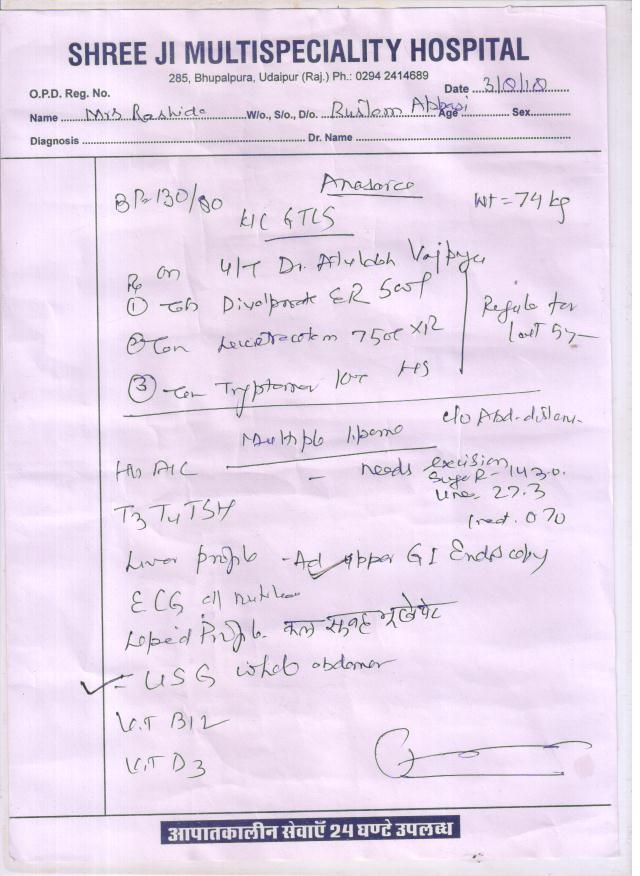 SHREE JI MULTISPECIALITY HOSPITAL
285, Bhupalpura, Udaipur (Raj.) Ph.: 0294 2414689
O.P.D. Reg. No. Date
Name Mrs Rashida W/o, S/o, D/o. Rustom Abbasi Age Sex
Diagnosis Dr. Name
Anasarca
BP-130/80 Wt = 74 kg
K/C GTCS
on U/T Dr. Vajpayee
① Tab ER 500
② 750 X12
Regular for last 5y
③ Tab Tryptomer HS
c/o Abd.
Multiple lipoma
- needs excision
Hb A1C
Sugar R- 143.0.
Urea 27.3
T3 T4 TSH
Creat. 0.70
Liver profile - Ad upper GI Endoscopy
ECG all
Lipid Profile. कल सुबह भूखे पेट
- USG whole abdomen
Vit B12
Vit D3
आपातकालीन सेवाएँ 24 घण्टे उपलब्ध